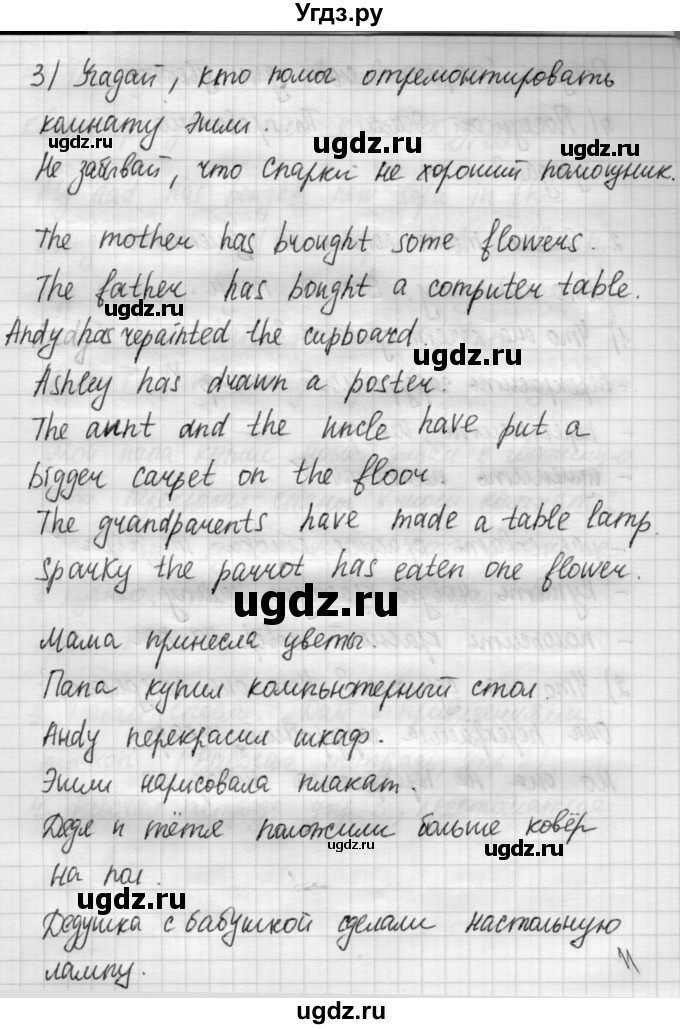 Угдз.ру
3) Угадай, кто помог отремонтировать
комнату Эшли
Не забывай, что Спарки не хороший помощник.
The mother has brought some flowers.
The father has bought a computer table.
Andy has repainted the cupboard.
Ashley has drawn a poster.
The aunt and the uncle have put a
bigger carpet on the floor.
The grandparents have made a table lamp.
Sparky the parrot has eaten one flower.
Мама принесла цветы.
Папа купил компьютерный стол.
Andy перекрасил шкаф.
Эшли нарисовала плакат.
Дядя и тётя положили больше ковёр
на пол.
Дедушка с бабушкой сделали настольную
лампу.
ugdz.ru
ugdz.ru
ugdz.ru
ugdz.ru
ugdz.ru
ugdz.ru
ugdz.ru
ugdz.ru
ugdz.ru
ugdz.ru